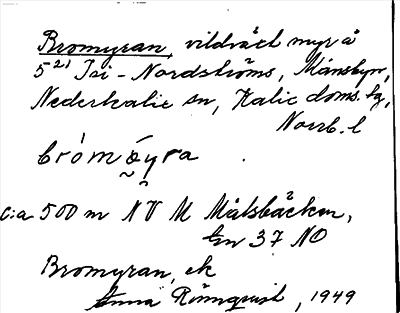 Bromyran, vildväxt myr å
5²⁾ Isi-Nordströms, Månsbyn,
Nederkalix sn, Kalix doms. sg,
Norrb. l
brómǫ̀yra
c:a 500 m NV M Målsbäcken,
En 37 NO
Bromyran, ek
Anna Rönnqvist, 1949